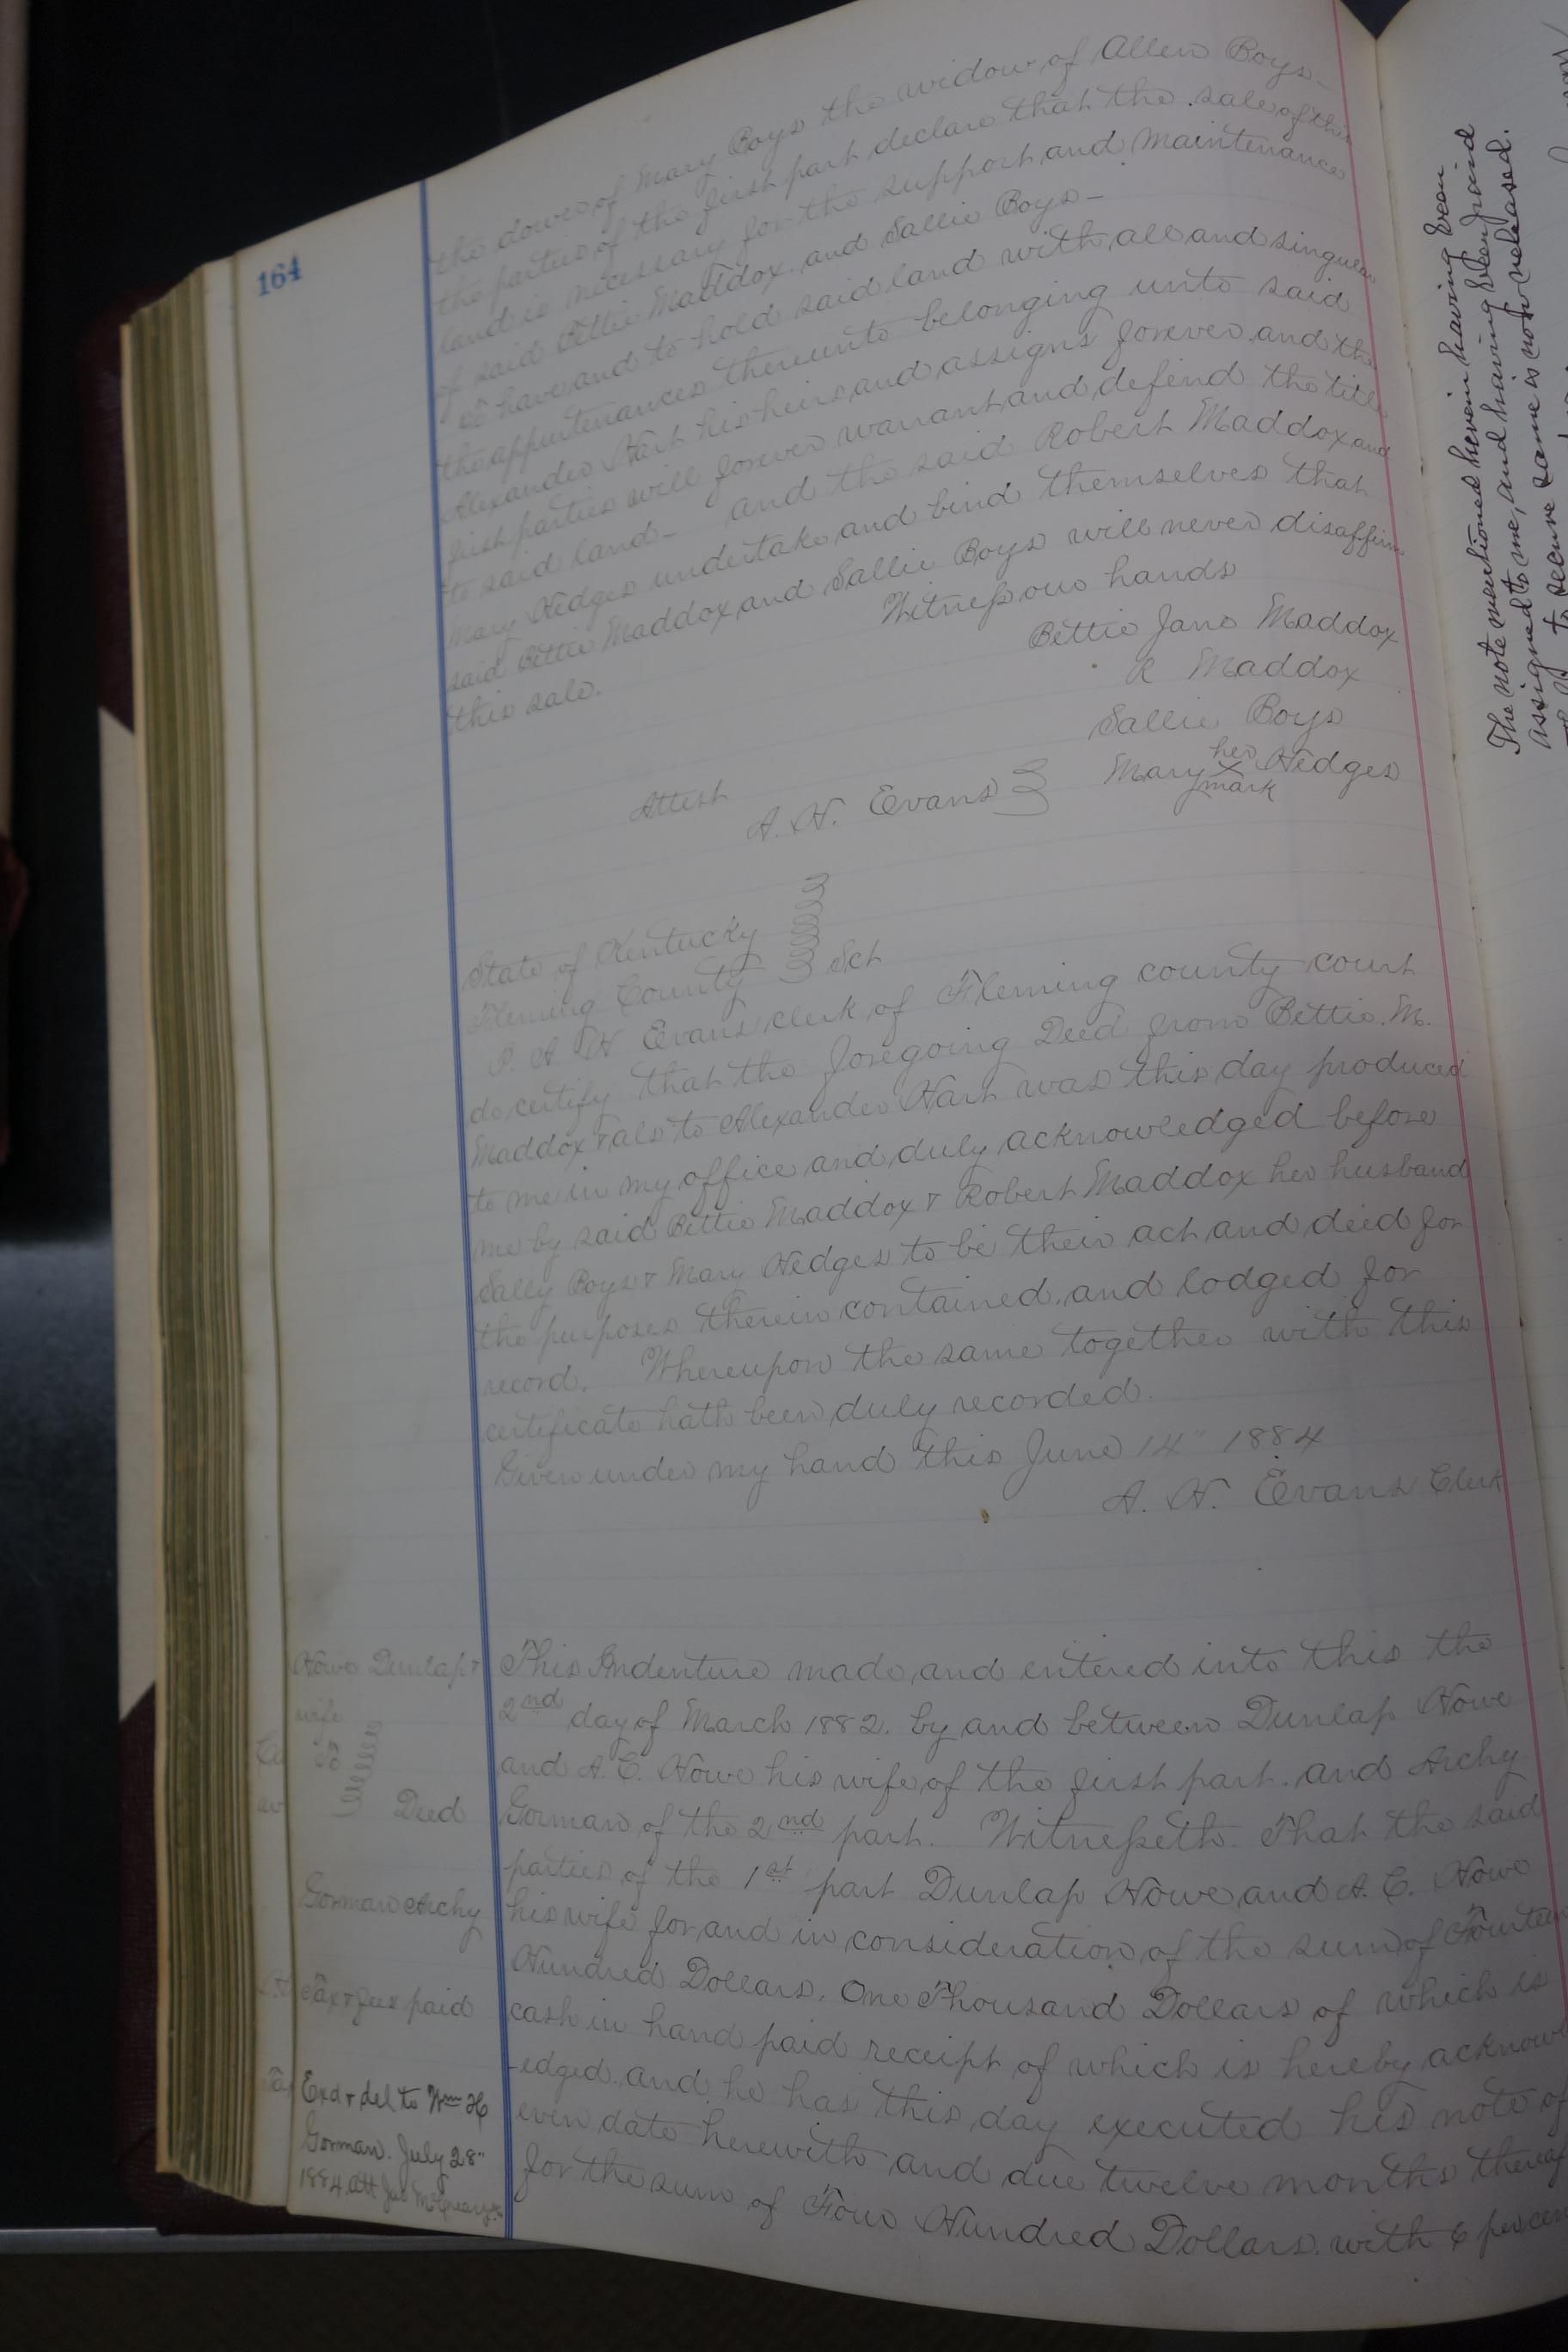 164
the dower of Mary Boys the widow of Allen Boys-
the parties of the first part declare that the sale of this
land is necessary for the support and maintenance
of said Bettie Maddox. and Sallie Boys-
To have and to hold said land with all and singular
the appurtenances thereunto belonging unto said
Alexander Hart his heirs and assigns forever. and the
first parties will forever warrant and defend the title
to said land- and the said Robert Maddox and
Mary Hedges undertake and bind themselves that
said Bettie Maddox and Sallie Boys will never disaffirm
this sale. Witness our hands
Bettie Jane Maddox
R Maddox
Sallie Boys
her
Attest Mary X Hedges
A. H. Evans mark
State of Kentucky
Fleming County Sct
I. A H Evans clerk of Fleming county court
do certify that the foregoing Deed from Bettie. M.
Maddox & als to Alexander Hart was this day produced
to me in my office and duly acknowledged before
me by said Bettie Maddox & Robert Maddox her husband
Sally Boys & Mary Hedges to be their act and deed for
the purposes therein contained. and lodged for
record. Whereupon the same together with this
certificate hath been duly recorded.
Given under my hand this June 14" 1884
A. H. Evans Clerk
Howe Dunlap &
wife
To
Deed
Gorman Archy
Tax & fees paid
Exd & del to Wm H
Gorman. July 28"
1884. att Jas
This Indenture made and entered into this the
2nd day of March 1882. by and between Dunlap Howe
and A. C. Howe his wife of the first part. and Archy
Gorman of the 2nd part. Witnesseth. That the said
parties of the 1st part Dunlap Howe and A. C. Howe
his wife for and in consideration of the sum of Fourteen
Hundred Dollars. One Thousand Dollars of which is
cash in hand paid receipt of which is hereby acknowl
-edged. and he has this day executed his note of
even date herewith and due twelve months thereaf
for the sum of Four Hundred Dollars. with 6 per cen
The note mentioned herein having been
assigned to me, and having been paid
to secure same is now released.